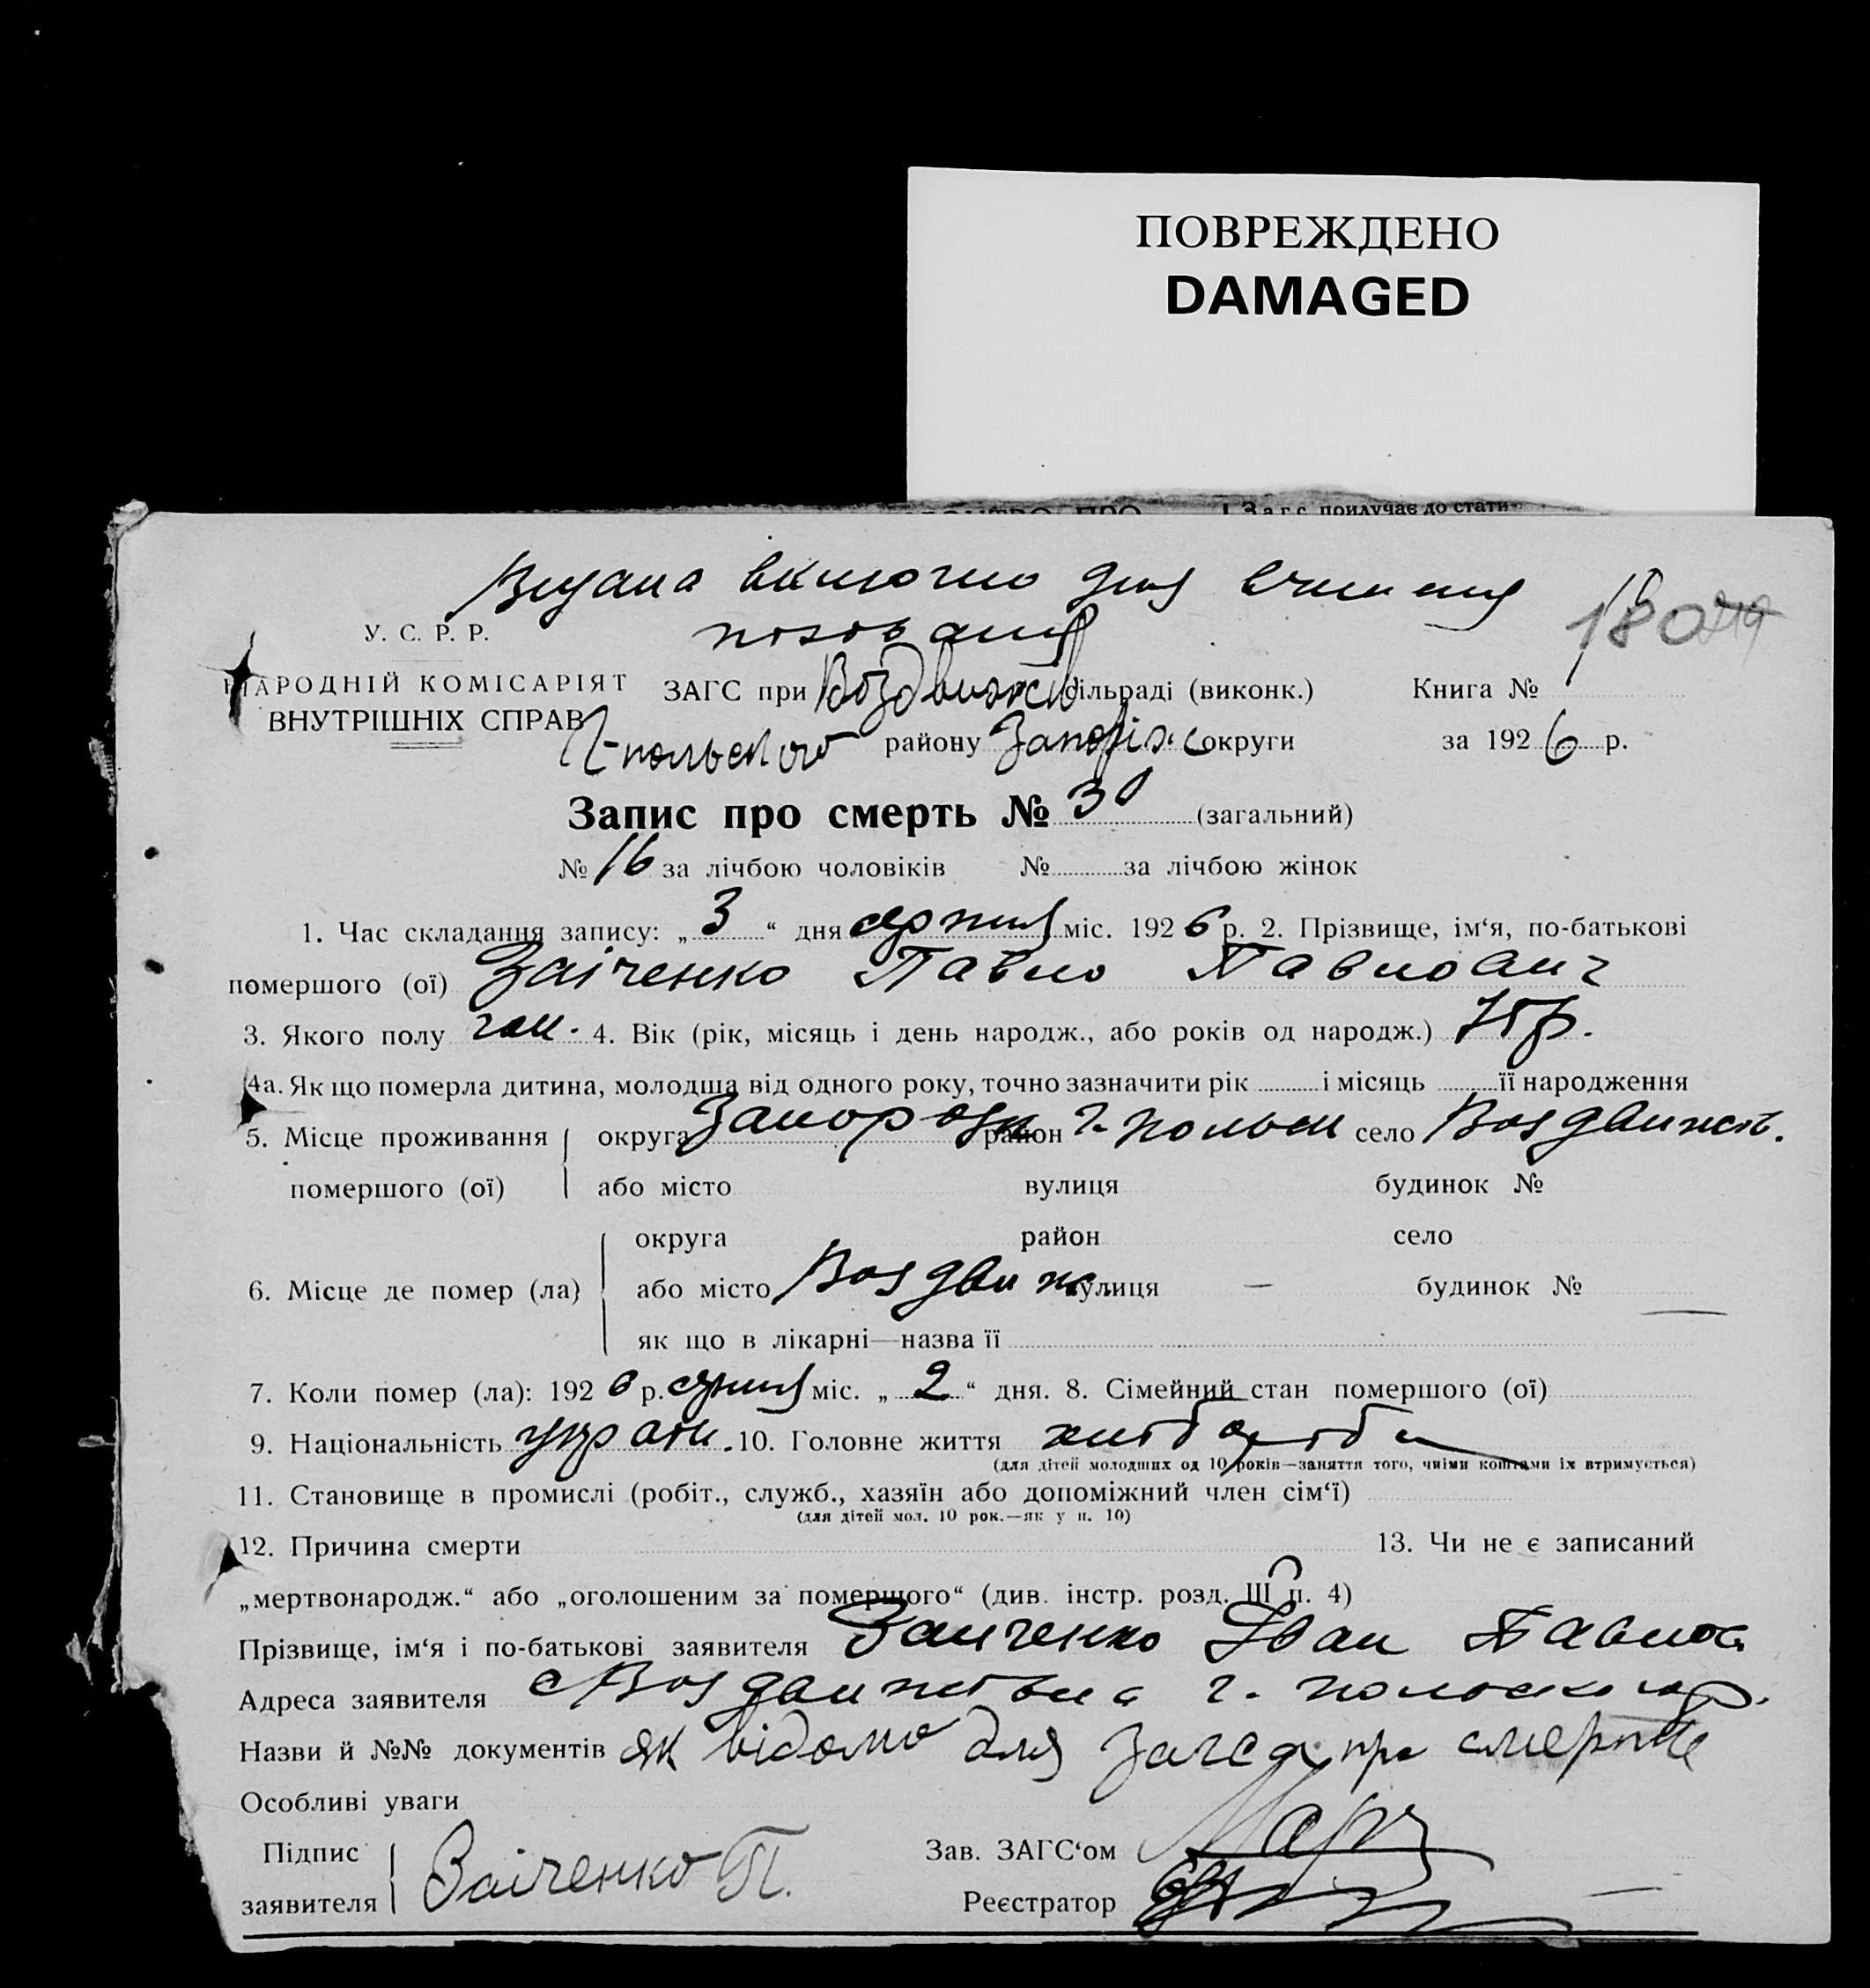 ПОВРЕЖДЕНО
DAMAGED
Загс прилучає до стати-
Видана включно для
поховання
180
У. С. Р. Р.
НАРОДНІЙ КОМІСАРІЯТ ЗАГС при Воздвижів сільраді (виконк.) Книга №
ВНУТРІШНІХ СПРАВ Г-польского району Запоріж. округи за 1926 р.
Запис про смерть № 30 (загальний)
№ 16 за лічбою чоловіків № за лічбою жінок
1. Час складання запису: „3“ дня серпня міс. 1926 р. 2. Прізвище, ім‘я, по-батькові
помершого (ої) Заіченко Павло Павлович
3. Якого полу чол. 4. Вік (рік, місяць і день народж., або років од народж.) 75 р.
4а. Як що померла дитина, молодша від одного року, точно зазначити рік і місяць її народження
5. Місце проживання округа Запорож район Г-польськ село Воздвижів.
помершого (ої) або місто вулиця будинок №
округа район село
6. Місце де помер (ла) або місто Воздвиж. вулиця — будинок № —
як що в лікарні—назва її
7. Коли помер (ла): 1926 р. серпня міс. „2“ дня. 8. Сімейний стан помершого (ої)
9. Національність україн. 10. Головне життя
(для дітей молодших од 10 років—заняття того, чиїми коштами їх втримується)
11. Становище в промислі (робіт., служб., хазяїн або допоміжний член сім‘ї)
(для дітей мол. 10 рок.—як у п. 10)
12. Причина смерти 13. Чи не є записаний
„мертвонародж.“ або „оголошеним за помершого“ (див. інстр. розд. III п. 4)
Прізвище, ім‘я і по-батькові заявителя Заиченко Іван Павлов
Адреса заявителя с Воздвижівка Г-польского р.
Назви й №№ документів як відомо для Загса про смерть
Особливі уваги
Підпис Заіченко П. Зав. ЗАГС‘ом
заявителя Реєстратор